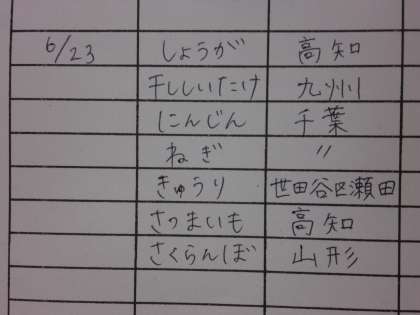 6/23 しょうが 高知
干ししいたけ 九州
にんじん 千葉
ねぎ 〃
きゅうり 世田谷区瀬田
さつまいも 高知
さくらんぼ 山形